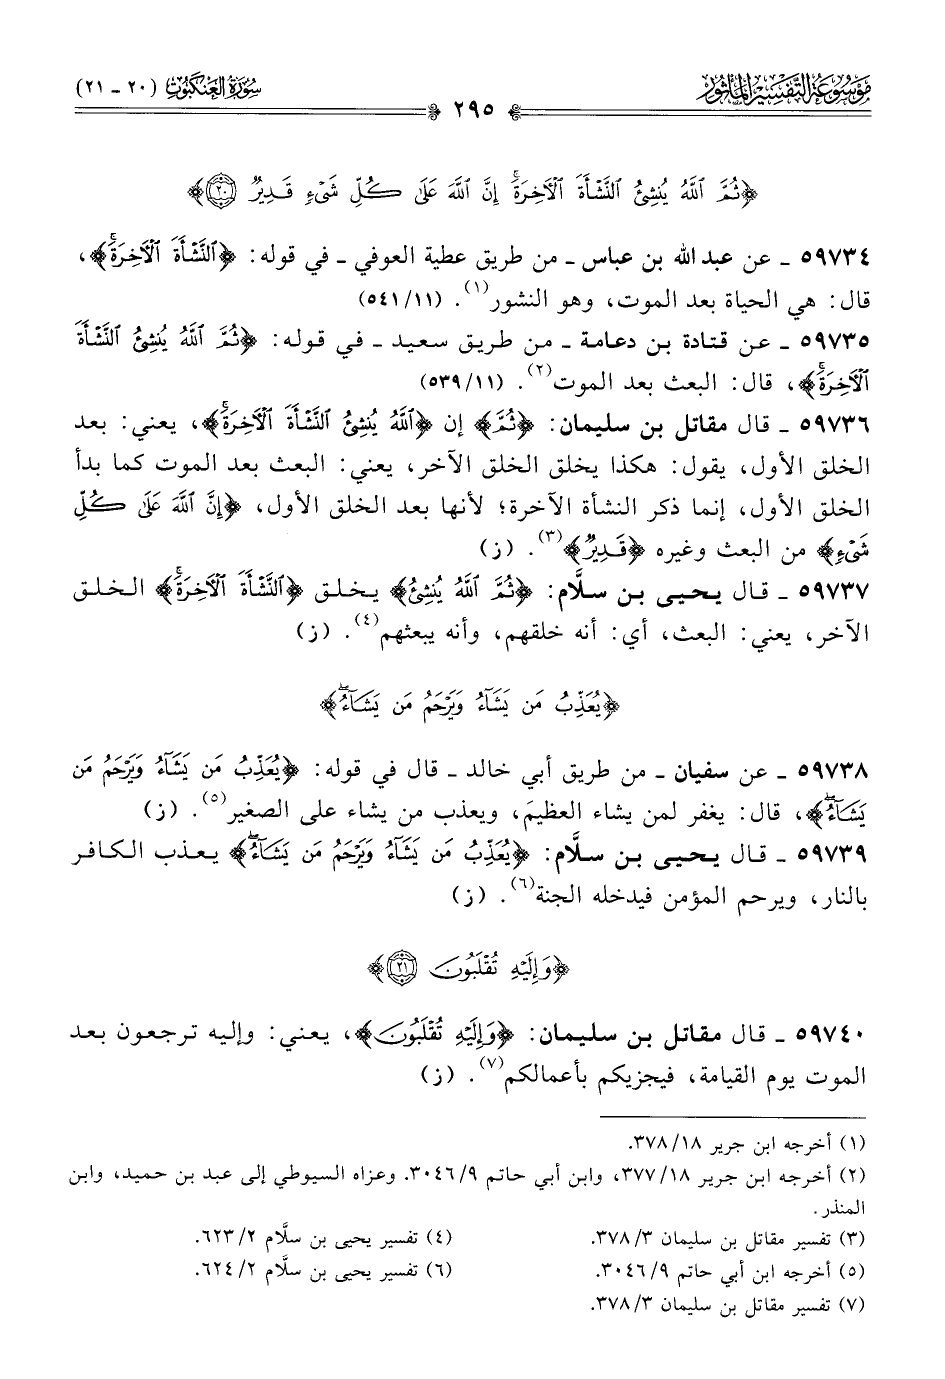 موسوعة التفسير المأثور
سورة العنكبوت (٢٠ - ٢١)
٢٩٥
﴿ثُمَّ ٱللَّهُ يُنشِئُ ٱلنَّشْأَةَ ٱلْآخِرَةَۚ إِنَّ ٱللَّهَ عَلَىٰ كُلِّ شَىْءٍ قَدِيرٌ ٢٠﴾
٥٩٧٣٤ - عن عبد الله بن عباس - من طريق عطية العوفي - في قوله: ﴿ٱلنَّشْأَةَ ٱلْآخِرَةَۚ﴾،
قال: هي الحياة بعد الموت، وهو النشور(١). (٥٤١/١١)
٥٩٧٣٥ - عن قتادة بن دعامة - من طريق سعيد - في قوله: ﴿ثُمَّ ٱللَّهُ يُنشِئُ ٱلنَّشْأَةَ
ٱلْآخِرَةَۚ﴾، قال: البعث بعد الموت(٢). (٥٣٩/١١)
٥٩٧٣٦ - قال مقاتل بن سليمان: ﴿ثُمَّ﴾ إن ﴿ٱللَّهُ يُنشِئُ ٱلنَّشْأَةَ ٱلْآخِرَةَۚ﴾، يعني: بعد
الخلق الأول، يقول: هكذا يخلق الخلق الآخر، يعني: البعث بعد الموت كما بدأ
الخلق الأول، إنما ذكر النشأة الآخرة؛ لأنها بعد الخلق الأول، ﴿إِنَّ ٱللَّهَ عَلَىٰ كُلِّ
شَىْءٍ﴾ من البعث وغيره ﴿قَدِيرٌ﴾(٣). (ز)
٥٩٧٣٧ - قال يحيى بن سلَّام: ﴿ثُمَّ ٱللَّهُ يُنشِئُ﴾ يخلق ﴿ٱلنَّشْأَةَ ٱلْآخِرَةَۚ﴾ الخلق
الآخر، يعني: البعث، أي: أنه خلقهم، وأنه يبعثهم(٤). (ز)
﴿يُعَذِّبُ مَن يَشَآءُ وَيَرْحَمُ مَن يَشَآءُۖ﴾
٥٩٧٣٨ - عن سفيان - من طريق أبي خالد - قال في قوله: ﴿يُعَذِّبُ مَن يَشَآءُ وَيَرْحَمُ مَن
يَشَآءُۖ﴾، قال: يغفر لمن يشاء العظيمَ، ويعذب من يشاء على الصغير(٥). (ز)
٥٩٧٣٩ - قال يحيى بن سلَّام: ﴿يُعَذِّبُ مَن يَشَآءُ وَيَرْحَمُ مَن يَشَآءُۖ﴾ يعذب الكافر
بالنار، ويرحم المؤمن فيدخله الجنة(٦). (ز)
﴿وَإِلَيْهِ تُقْلَبُونَ ٢١﴾
٥٩٧٤٠ - قال مقاتل بن سليمان: ﴿وَإِلَيْهِ تُقْلَبُونَ﴾، يعني: وإليه ترجعون بعد
الموت يوم القيامة، فيجزيكم بأعمالكم(٧). (ز)
(١) أخرجه ابن جرير ٣٧٨/١٨.
(٢) أخرجه ابن جرير ٣٧٧/١٨، وابن أبي حاتم ٣٠٤٦/٩. وعزاه السيوطي إلى عبد بن حميد، وابن
المنذر.
(٣) تفسير مقاتل بن سليمان ٣٧٨/٣.
(٤) تفسير يحيى بن سلَّام ٦٢٣/٢.
(٥) أخرجه ابن أبي حاتم ٣٠٤٦/٩.
(٦) تفسير يحيى بن سلَّام ٦٢٤/٢.
(٧) تفسير مقاتل بن سليمان ٣٧٨/٣.